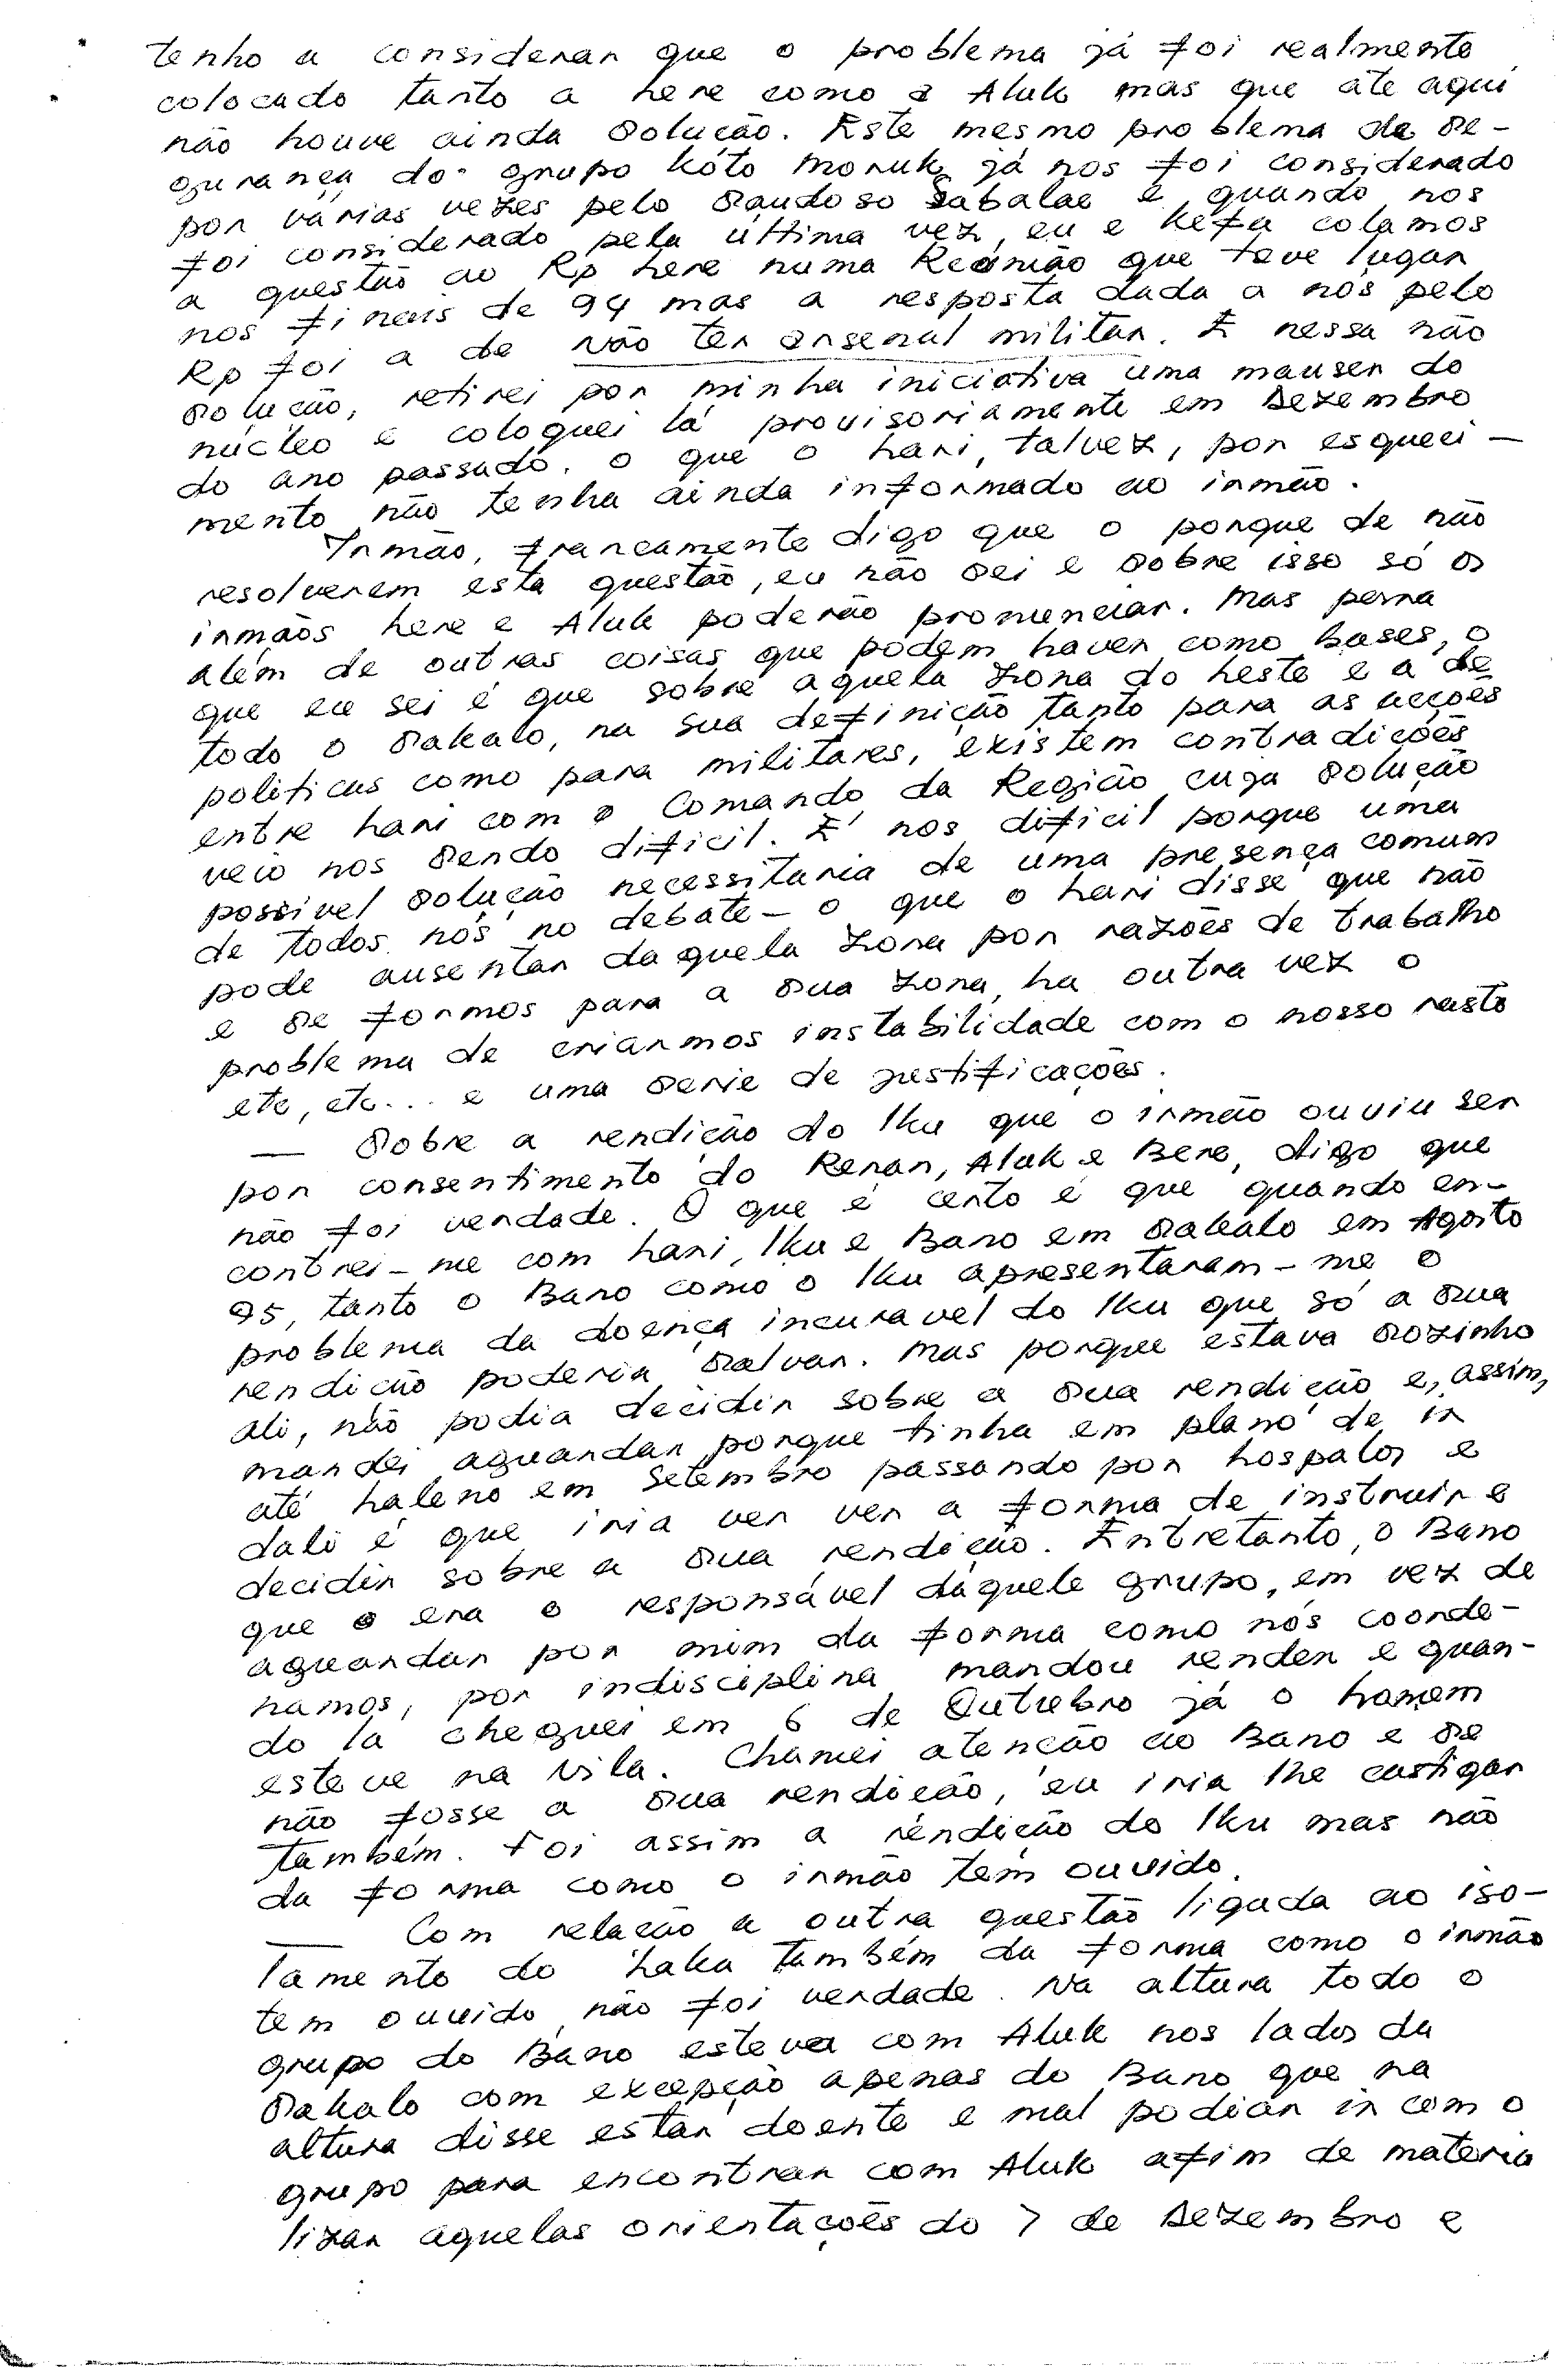 tenho a considerar que o problema já foi realmente
colocado tanto a Lere como a Aluk mas que ate aqui
não houve ainda solução. Este mesmo problema de se-
gurança do grupo Kóto Moruk já nos foi considerado
por várias vezes pelo saudoso Sabalae e quando nos
foi considerado pela última vez, eu e Keta colamos
a questão ao Rp Lere numa Reunião que teve lugar
nos finais de 94 mas a resposta dada a nós pelo
Rp foi a de não ter arsenal militar. E nessa não
solução, retirei por minha iniciativa uma mauser do
núcleo e coloquei lá provisoriamente em Dezembro
do ano passado. O que o Lari, talvez, por esqueci-
mento não tenha ainda informado ao irmão.
Irmão, francamente digo que o porque de não
resolverem esta questão, eu não sei e sobre isso só os
irmãos Lere e Aluk poderão pronunciar. Mas perra
além de outras coisas que podem haver como bases, o
que eu sei é que sobre aquela zona do Leste e a de
todo o Sakalo, na sua definição tanto para as acções
politicas como para militares, existem contradições
entre Lari com o Comando da Região cuja solução
veio nos sendo dificil. E' nos dificil porque uma
possivel solução necessitaria de uma presença comum
de todos nós no debate - o que o Lari disse que não
pode ausentar daquela zona por razões de trabalho
e se formos para a sua zona, ha outra vez o
problema de criarmos instabilidade com o nosso rasto
etc, etc... e uma serie de justificações.
— Sobre a rendição do Iku que o irmão ouviu ser
por consentimento do Renan, Aluk e Bere, digo que
não foi verdade. O que é certo é que quando en-
contrei-me com Lari, Iku e Bano em Sakalo em Agosto
95, tanto o Bano como o Iku apresentaram-me o
problema da doença incuravel do Iku que só a sua
rendição poderia salvar. Mas porque estava sozinho
ali, não podia decidir sobre a sua rendição e, assim,
mandei aguardar porque tinha em plano de ir
até Laleno em Setembro passando por hospalos e
dali é que iria ver ver a forma de instruir e
decidir sobre a sua rendição. Entretanto, o Bano
que o era o responsável daquele grupo, em vez de
aguardar por mim da forma como nós coorde-
namos, por indisciplina mandou render e quan-
do la cheguei em 6 de Outrubro já o homem
esteve na vila. Chamei atenção ao Bano e se
não fosse a sua rendição, eu iria lhe castigar
também. Foi assim a rendição do Iku mas não
da forma como o irmão tem ouvido.
— Com relação a outra questão ligada ao iso-
lamento do Laka também da forma como o irmão
tem ouvido não foi verdade. Na altura todo o
grupo do Bano esteva com Aluk nos lados da
Sakalo com excepção apenas do Bano que na
altura disse estar doente e mal podiar ir com o
grupo para encontrar com Aluk afim de materia
lizar aquelas orientações do 7 de Dezembro e